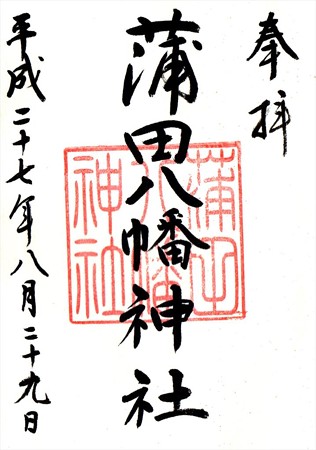 奉拝
蒲田八幡神社
蒲田
八幡
神社
平成二十七年八月二十九日